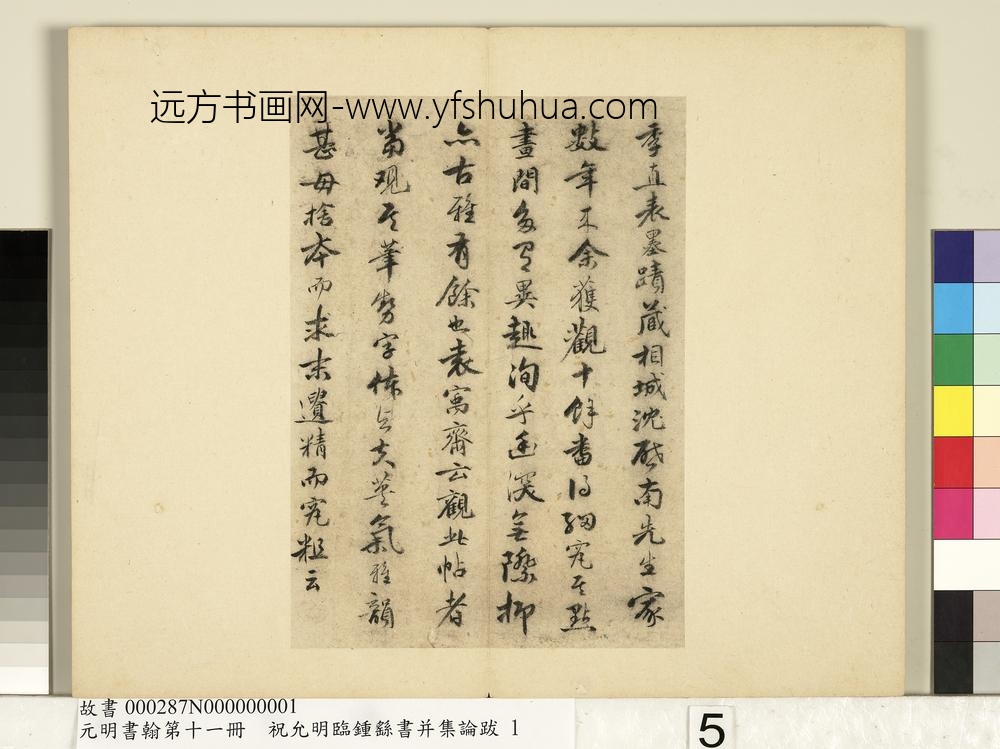 远方书画网-www.yfshuhua.com
季直表墨蹟藏相城沈啓南先生家
數年來余獲觀十餘番得細究其點
畫間多有異趣洵乎幽深無際抑
亦古雅有餘也袁寓齋云觀此帖者
當观其筆勢字体與夫英氣雅韻
甚毋捨本而求末遺精而究粗云
故書 000287N000000001
元明書翰第十一冊 祝允明臨鍾繇書并集論跋 1
5